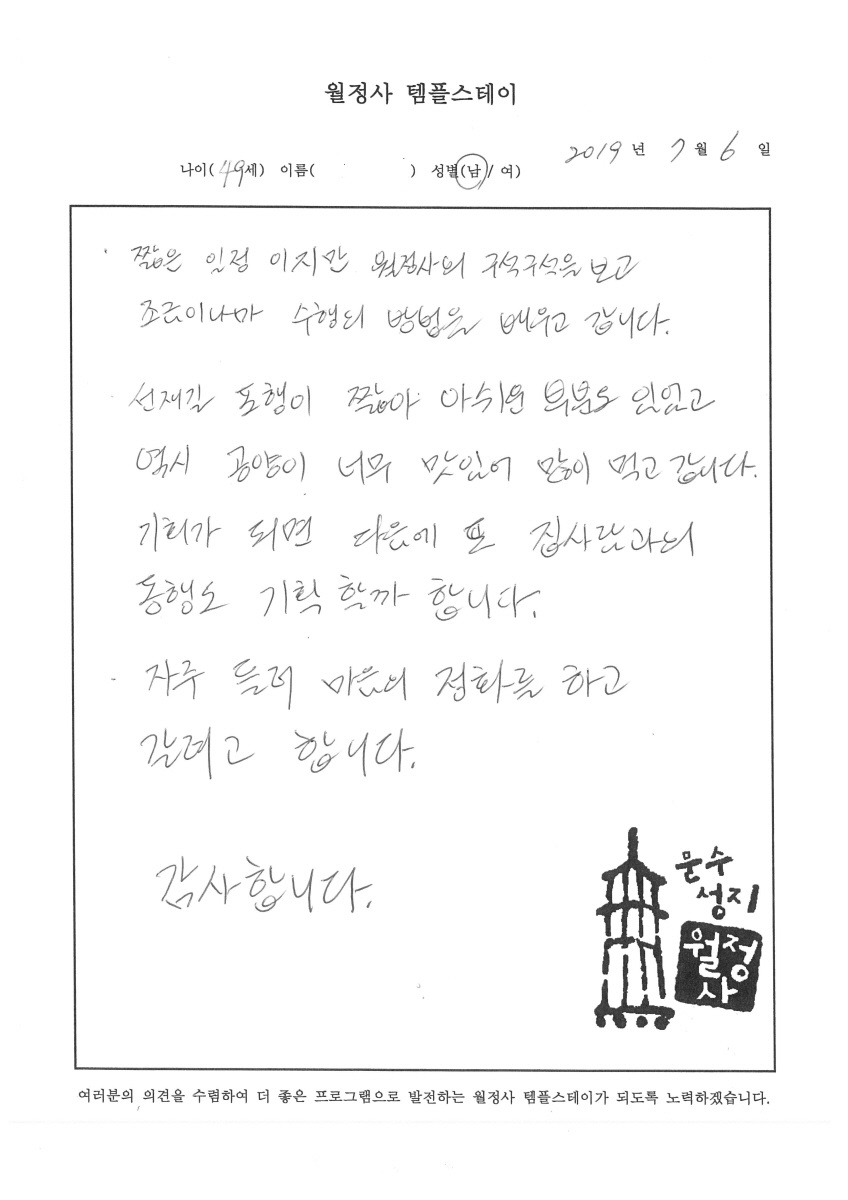 월정사 템플스테이
2019 년 7 월 6 일
나이( 49세) 이름( ) 성별(남 / 여)
· 짧은 일정 이지만 월정사의 구석구석을 보고
조금이나마 수행의 방법을 배우고 갑니다.
· 선재길 포행이 짧아 아쉬운 부분도 있었고
역시 공양이 너무 맛있어 많이 먹고 갑니다.
기회가 되면 다음에 또 집사람과의
동행도 기획 할까 합니다.
- 자주 들려 마음의 정화를 하고
갈려고 합니다.
감사합니다.
문수
성지
월정
사
여러분의 의견을 수렴하여 더 좋은 프로그램으로 발전하는 월정사 템플스테이가 되도록 노력하겠습니다.